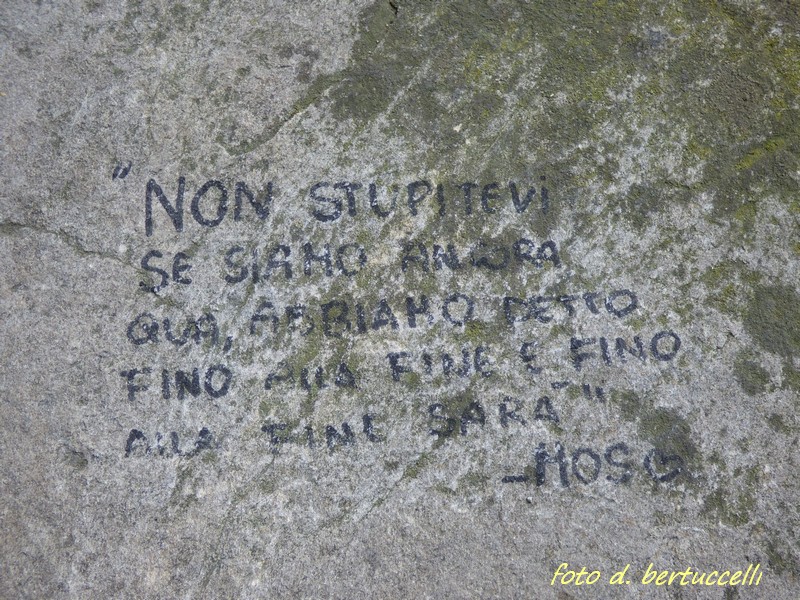 "NON STUPITEVI
SE SIAMO ANCORA
QUA, ABBIAMO DETTO
FINO ALLA FINE E FINO
ALLA FINE SARÀ"
-MOS♡
foto d. bertuccelli